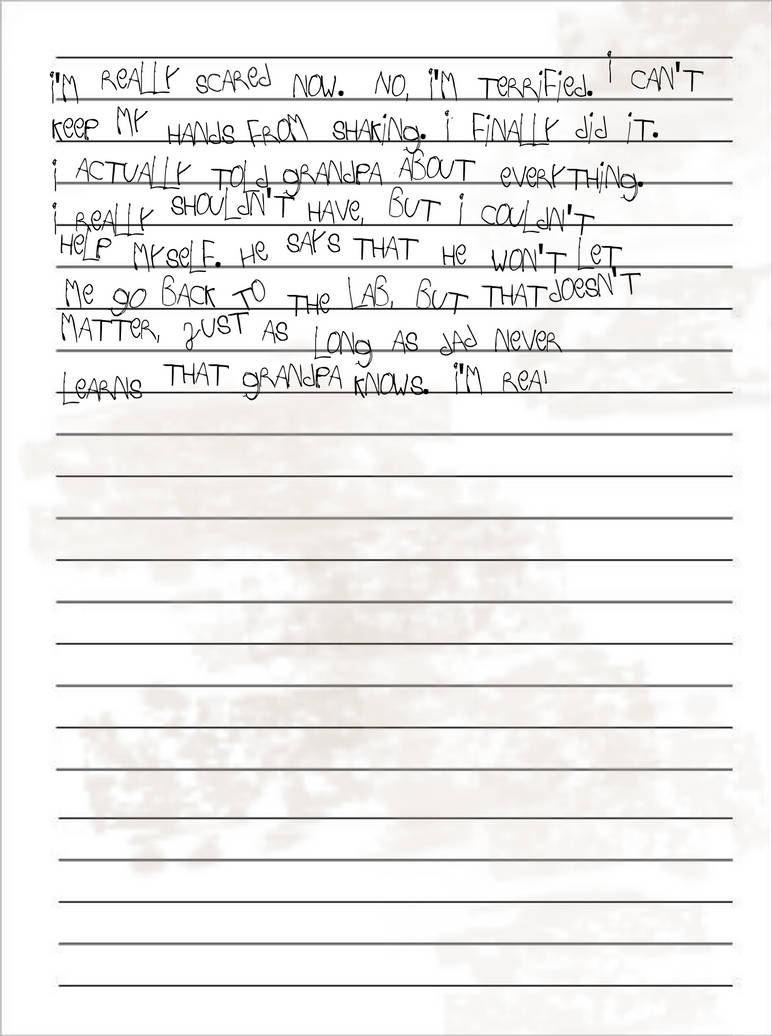 I'M REALLY SCARED NOW. NO, I'M TERRIFIED. I CAN'T
KEEP MY HANDS FROM SHAKING. I FINALLY DID IT.
I ACTUALLY TOLD GRANDPA ABOUT EVERYTHING.
I REALLY SHOULDN'T HAVE, BUT I COULDN'T
HELP MYSELF. HE SAYS THAT HE WON'T LET
ME GO BACK TO THE LAB, BUT THAT DOESN'T
MATTER, JUST AS LONG AS DAD NEVER
LEARNS THAT GRANDPA KNOWS. I'M REA